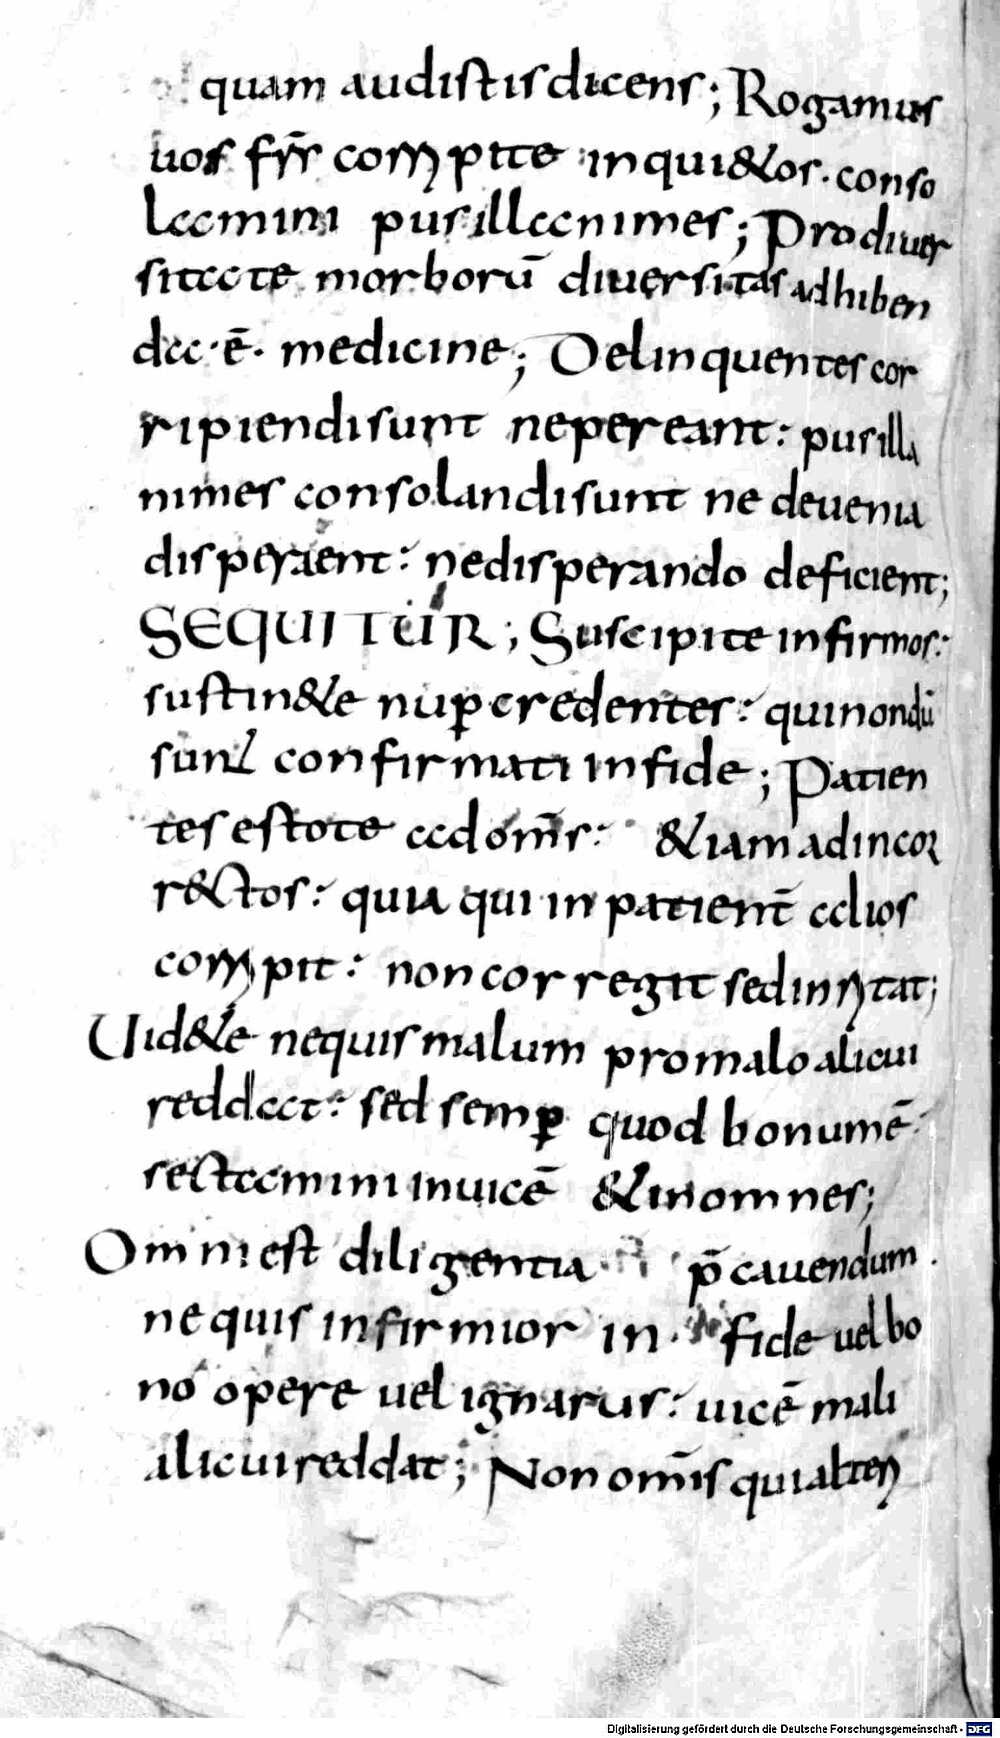 quam audistis dicens; Rogamus
uos frs̄ corripite inqui&os. conso
lamini pusillanimes; Pro diuer
sitate morborū diuersitas adhiben
da·ē· medicine; Delinquentes cor
ripiendi sunt ne pereant: pusilla
nimes consolandi sunt ne deuenia
disperaent: ne disperando deficient;
SEQUITUR; Suscipite infirmos:
sustin&e nuꝑ credentes: qui nondū
sunt confirmati in fide; Patien
tes estote ad om̄s: &iam ad incor
r&ctos: quia qui inpatient̄ alios
corripit: non corregit sed inritat;
Uid&e nequis malum pro malo alicui
reddat: sed semꝑ quod bonum ē·
sectamini inuicē & in omnes;
Omni est diligentia p̄cauendum.
nequis infirmior in fide uel bo
no opere uel ignarus: uicē mali
alicui reddat; Non om̄is qui alteri
Digitalisierung gefördert durch die Deutsche Forschungsgemeinschaft - DFG